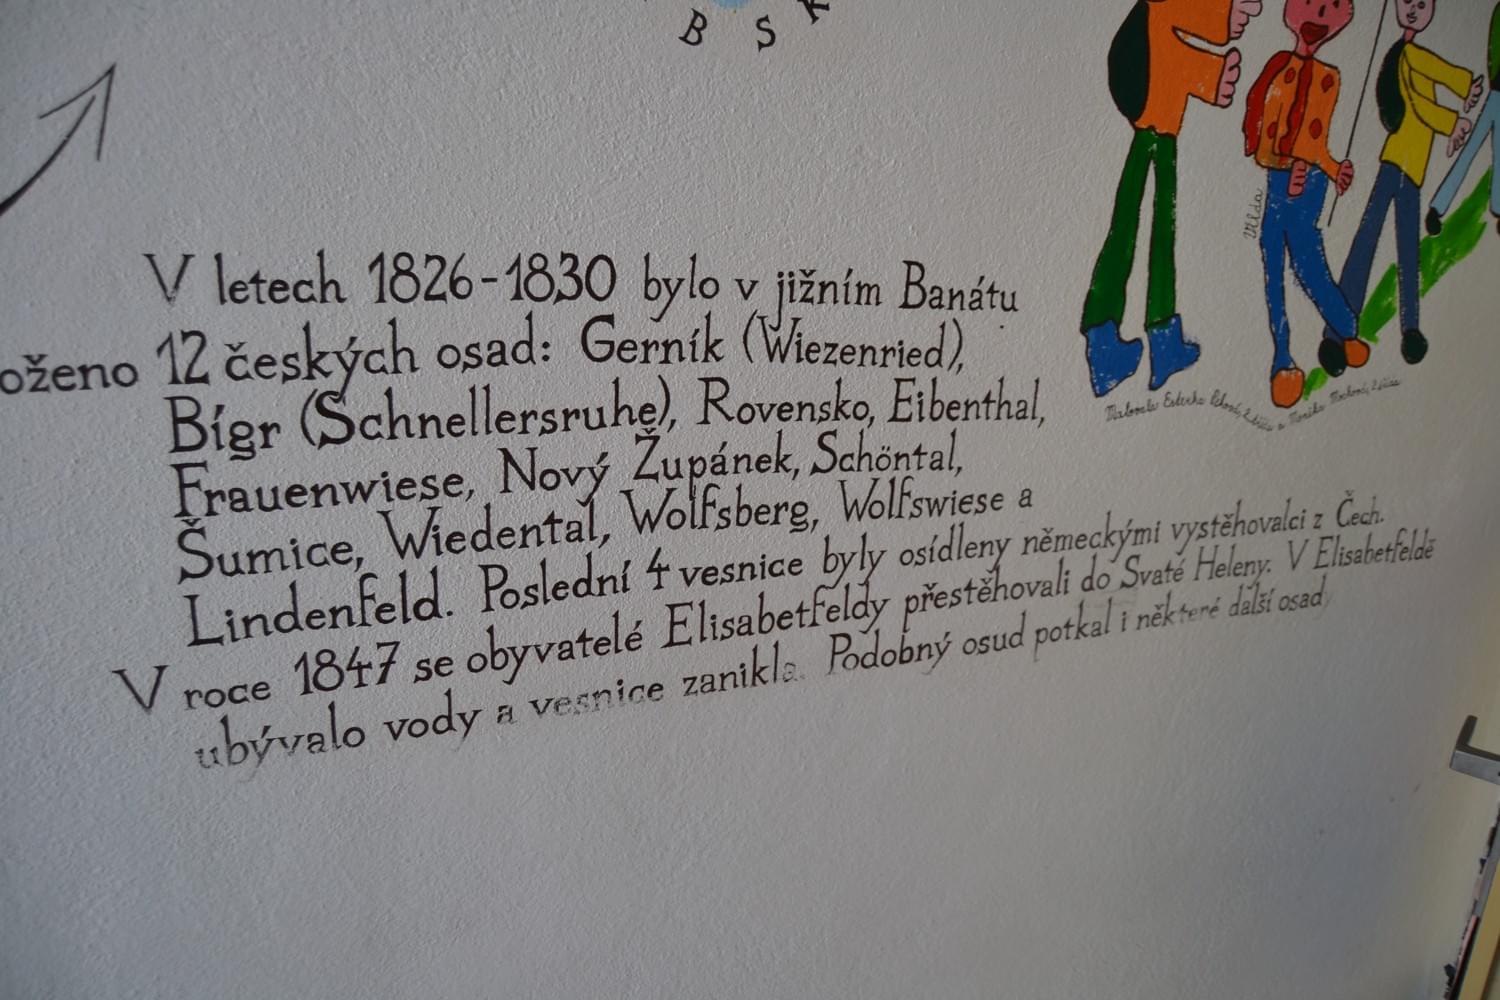 B S K
V letech 1826-1830 bylo v jižním Banátu
oženo 12 českých osad: Gerník (Wiezenried),
Bígr (Schnellersruhe), Rovensko, Eibenthal,
Frauenwiese, Nový Župánek, Schöntal,
Šumice, Wiedental, Wolfsberg, Wolfswiese a
Lindenfeld. Poslední 4 vesnice byly osídleny německými vystěhovalci z Čech.
V roce 1847 se obyvatelé Elisabetfeldy přestěhovali do Svaté Heleny. V Elisabetfeldě
ubývalo vody a vesnice zanikla. Podobný osud potkal i některé další osady